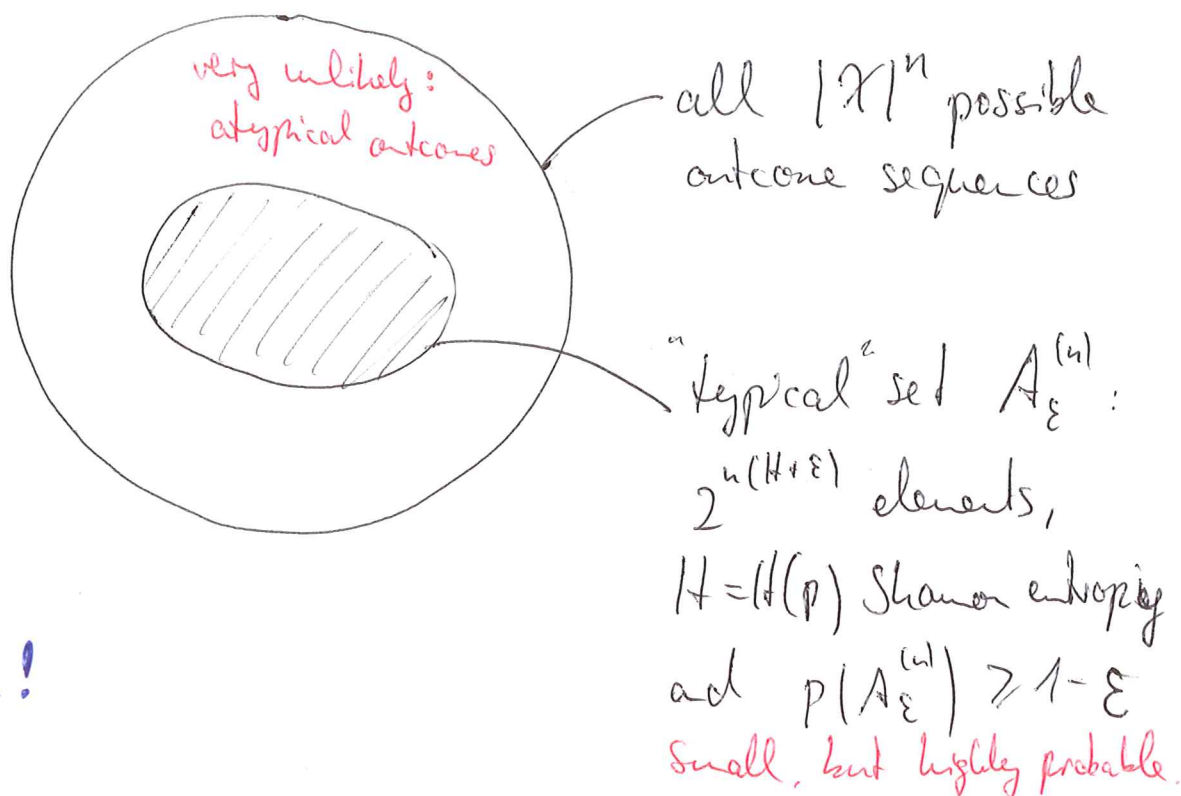 very unlikely:
atypical outcomes
all |𝒳|ⁿ possible
outcome sequences
"typical" set A_ε^(n) :
2^n(H+ε) elements,
H=H(p) Shannon entropy
and p(A_ε^(n)) ⩾ 1-ε
small, but highly probable.
!